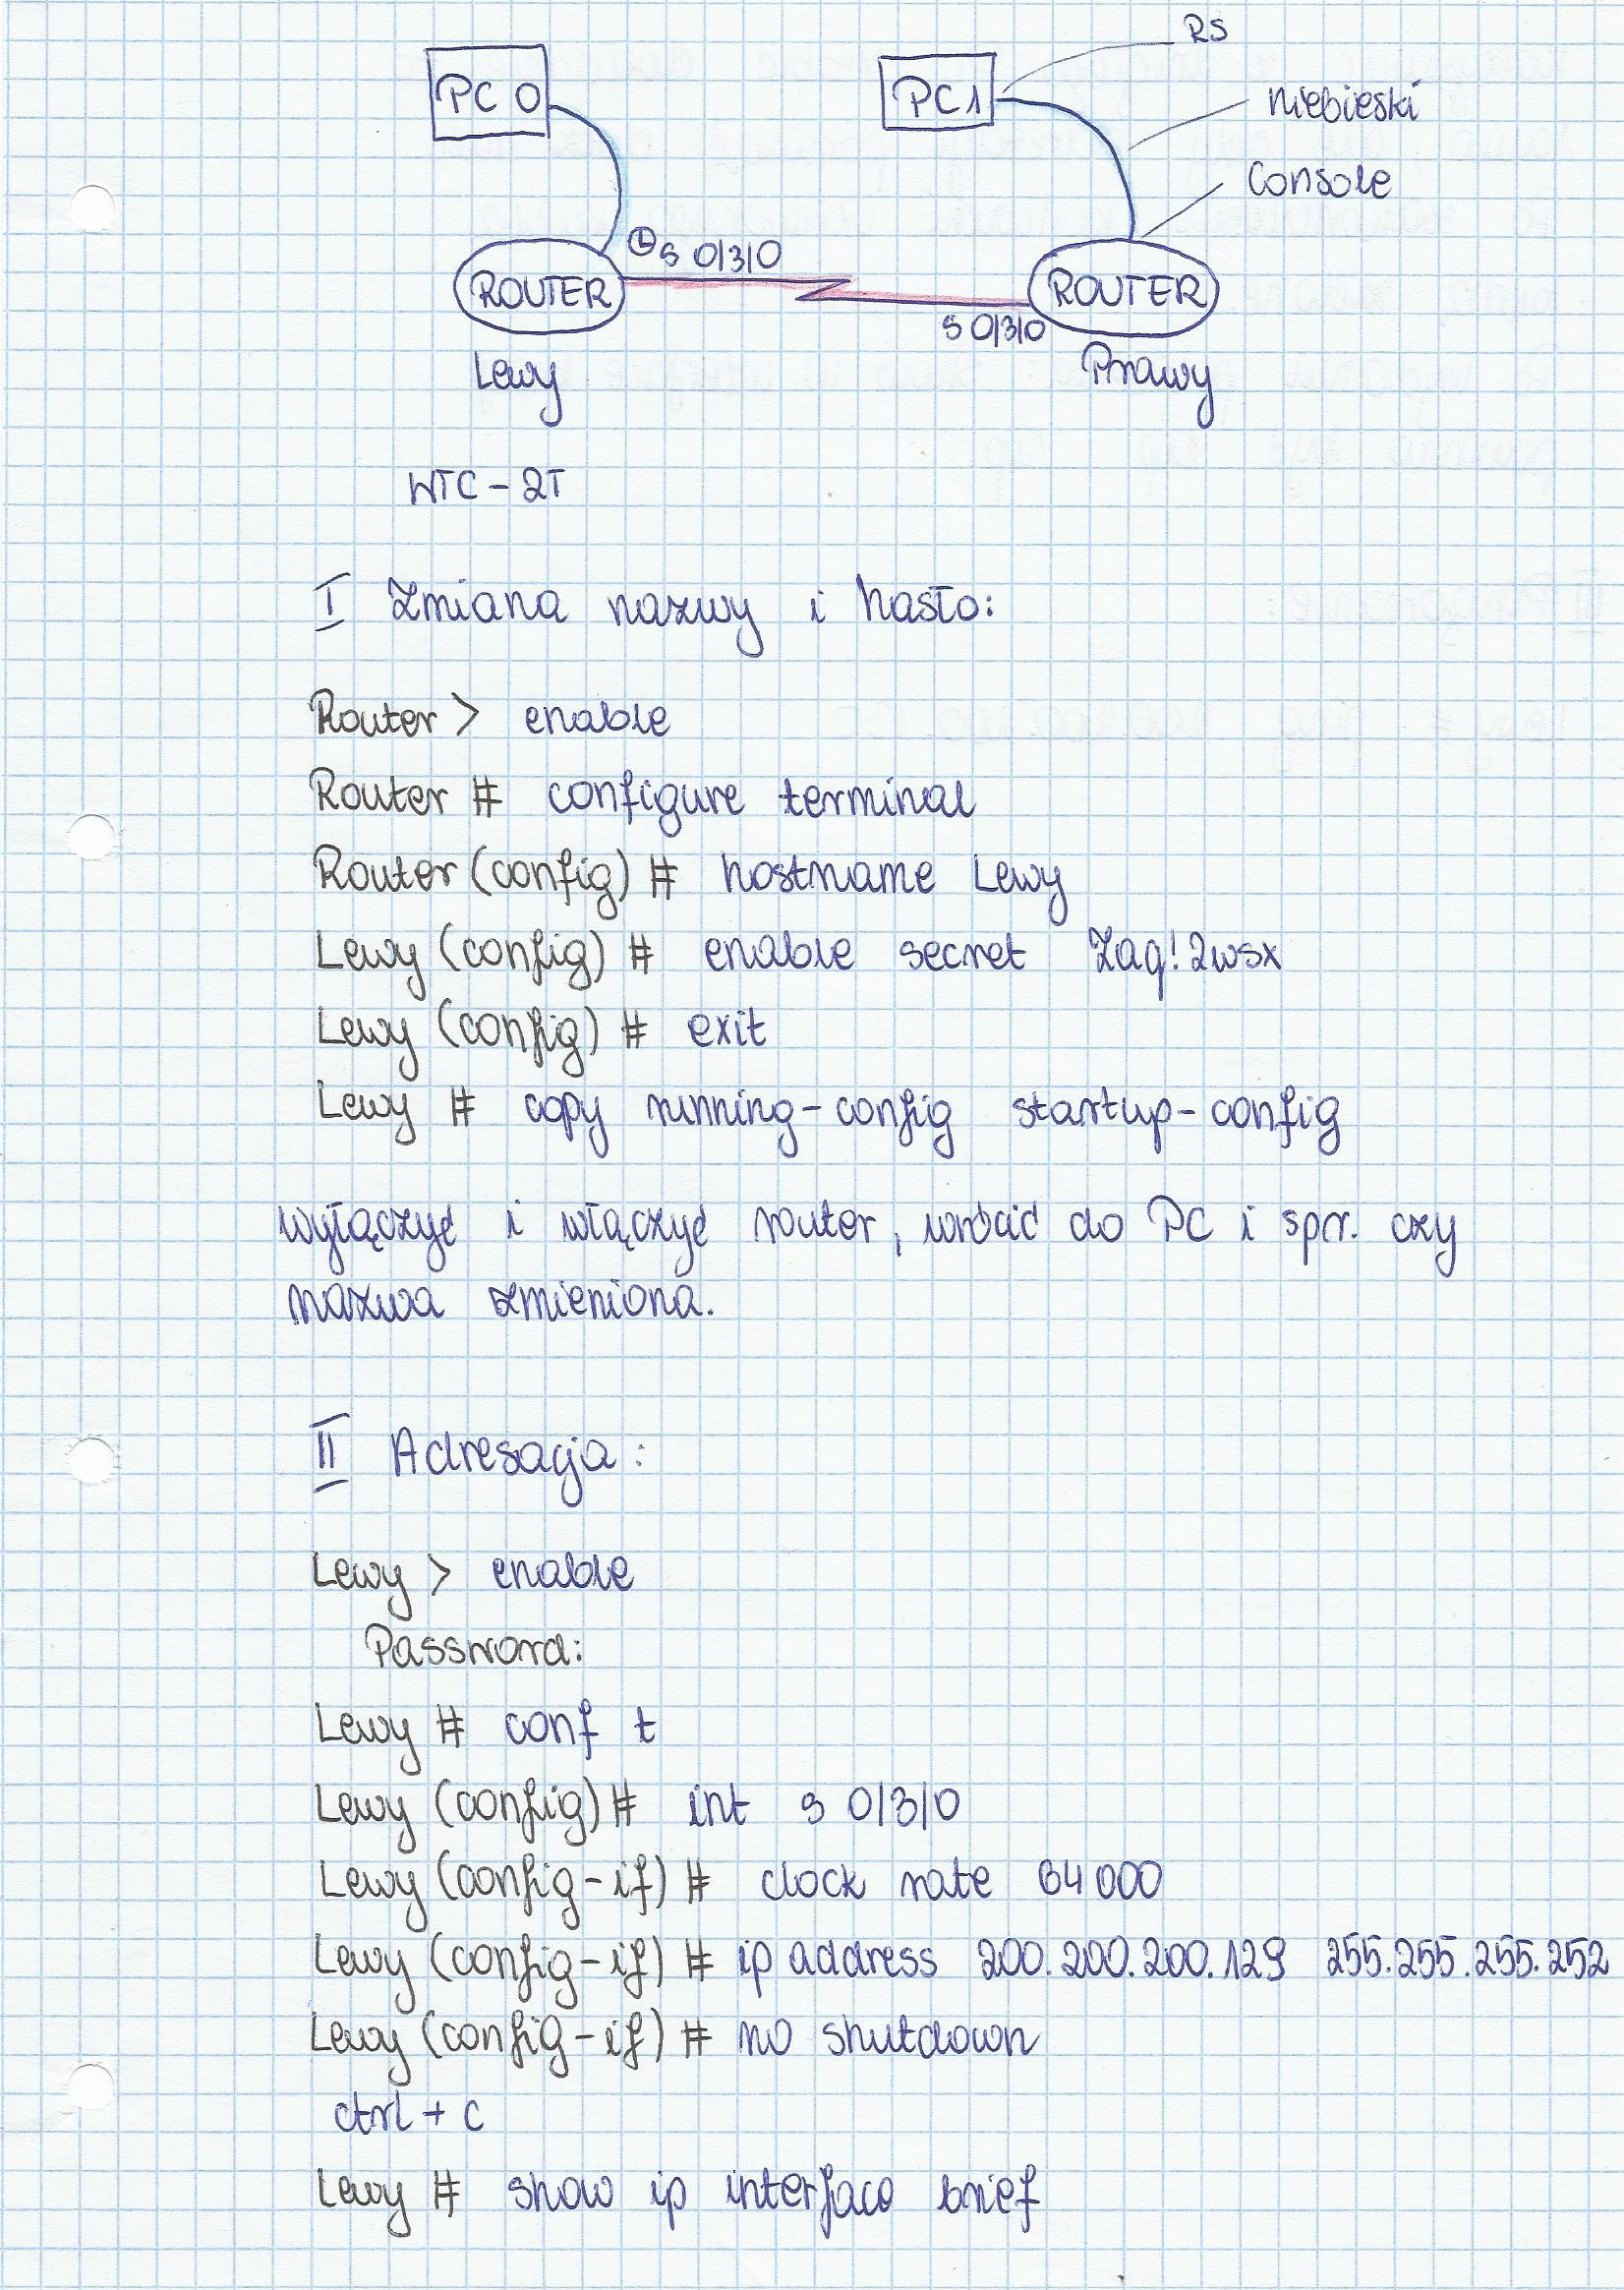 PC 0
PC 1
RS
niebieski
Console
ROUTER
S 0/3/0
S 0/3/0
ROUTER
Lewy
Prawy
WIC - 2T
I Zmiana nazwy i hasło:
Router > enable
Router # configure terminal
Router (config) # hostname Lewy
Lewy (config) # enable secret Zaq!2wsx
Lewy (config) # exit
Lewy # copy running-config startup-config
wyłączyć i włączyć router, wrócić do PC i spr. czy
nazwa zmieniona.
II Adresacja:
Lewy > enable
Password:
Lewy # conf t
Lewy (config) # int s 0/3/0
Lewy (config-if) # clock rate 64000
Lewy (config-if) # ip address 200.200.200.129 255.255.255.252
Lewy (config-if) # no shutdown
ctrl + c
Lewy # show ip interface brief